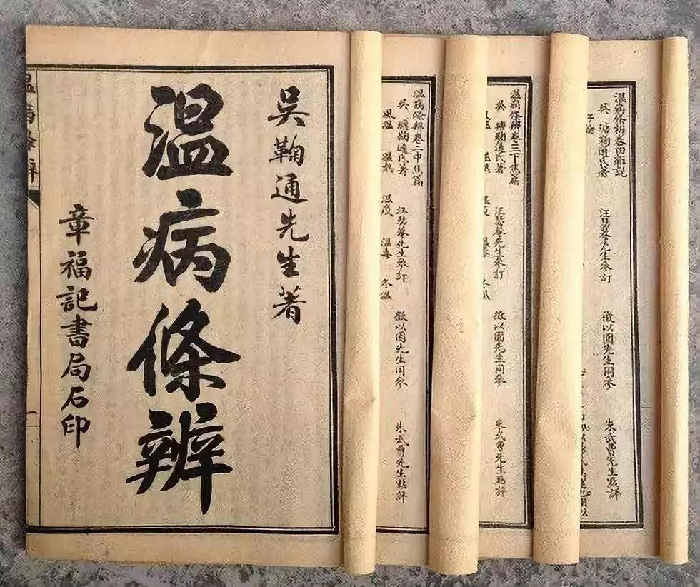 吳鞠通先生著
溫病條辨
章福記書局石印
溫病條辨卷二中焦篇
吳瑭鞠通氏著
汪瑟菴先生參訂
徵以園先生同參
朱武曹先生點評
風溫 溫熱 溫疫 溫毒 冬溫
溫病條辨卷三下焦篇
吳瑭鞠通氏著
汪瑟菴先生參訂
徵以園先生同參
朱武曹先生點評
溫病條辨卷四雜說
吳瑭鞠通氏著
汪瑟菴先生參訂
徵以園先生同參
朱武曹先生點評